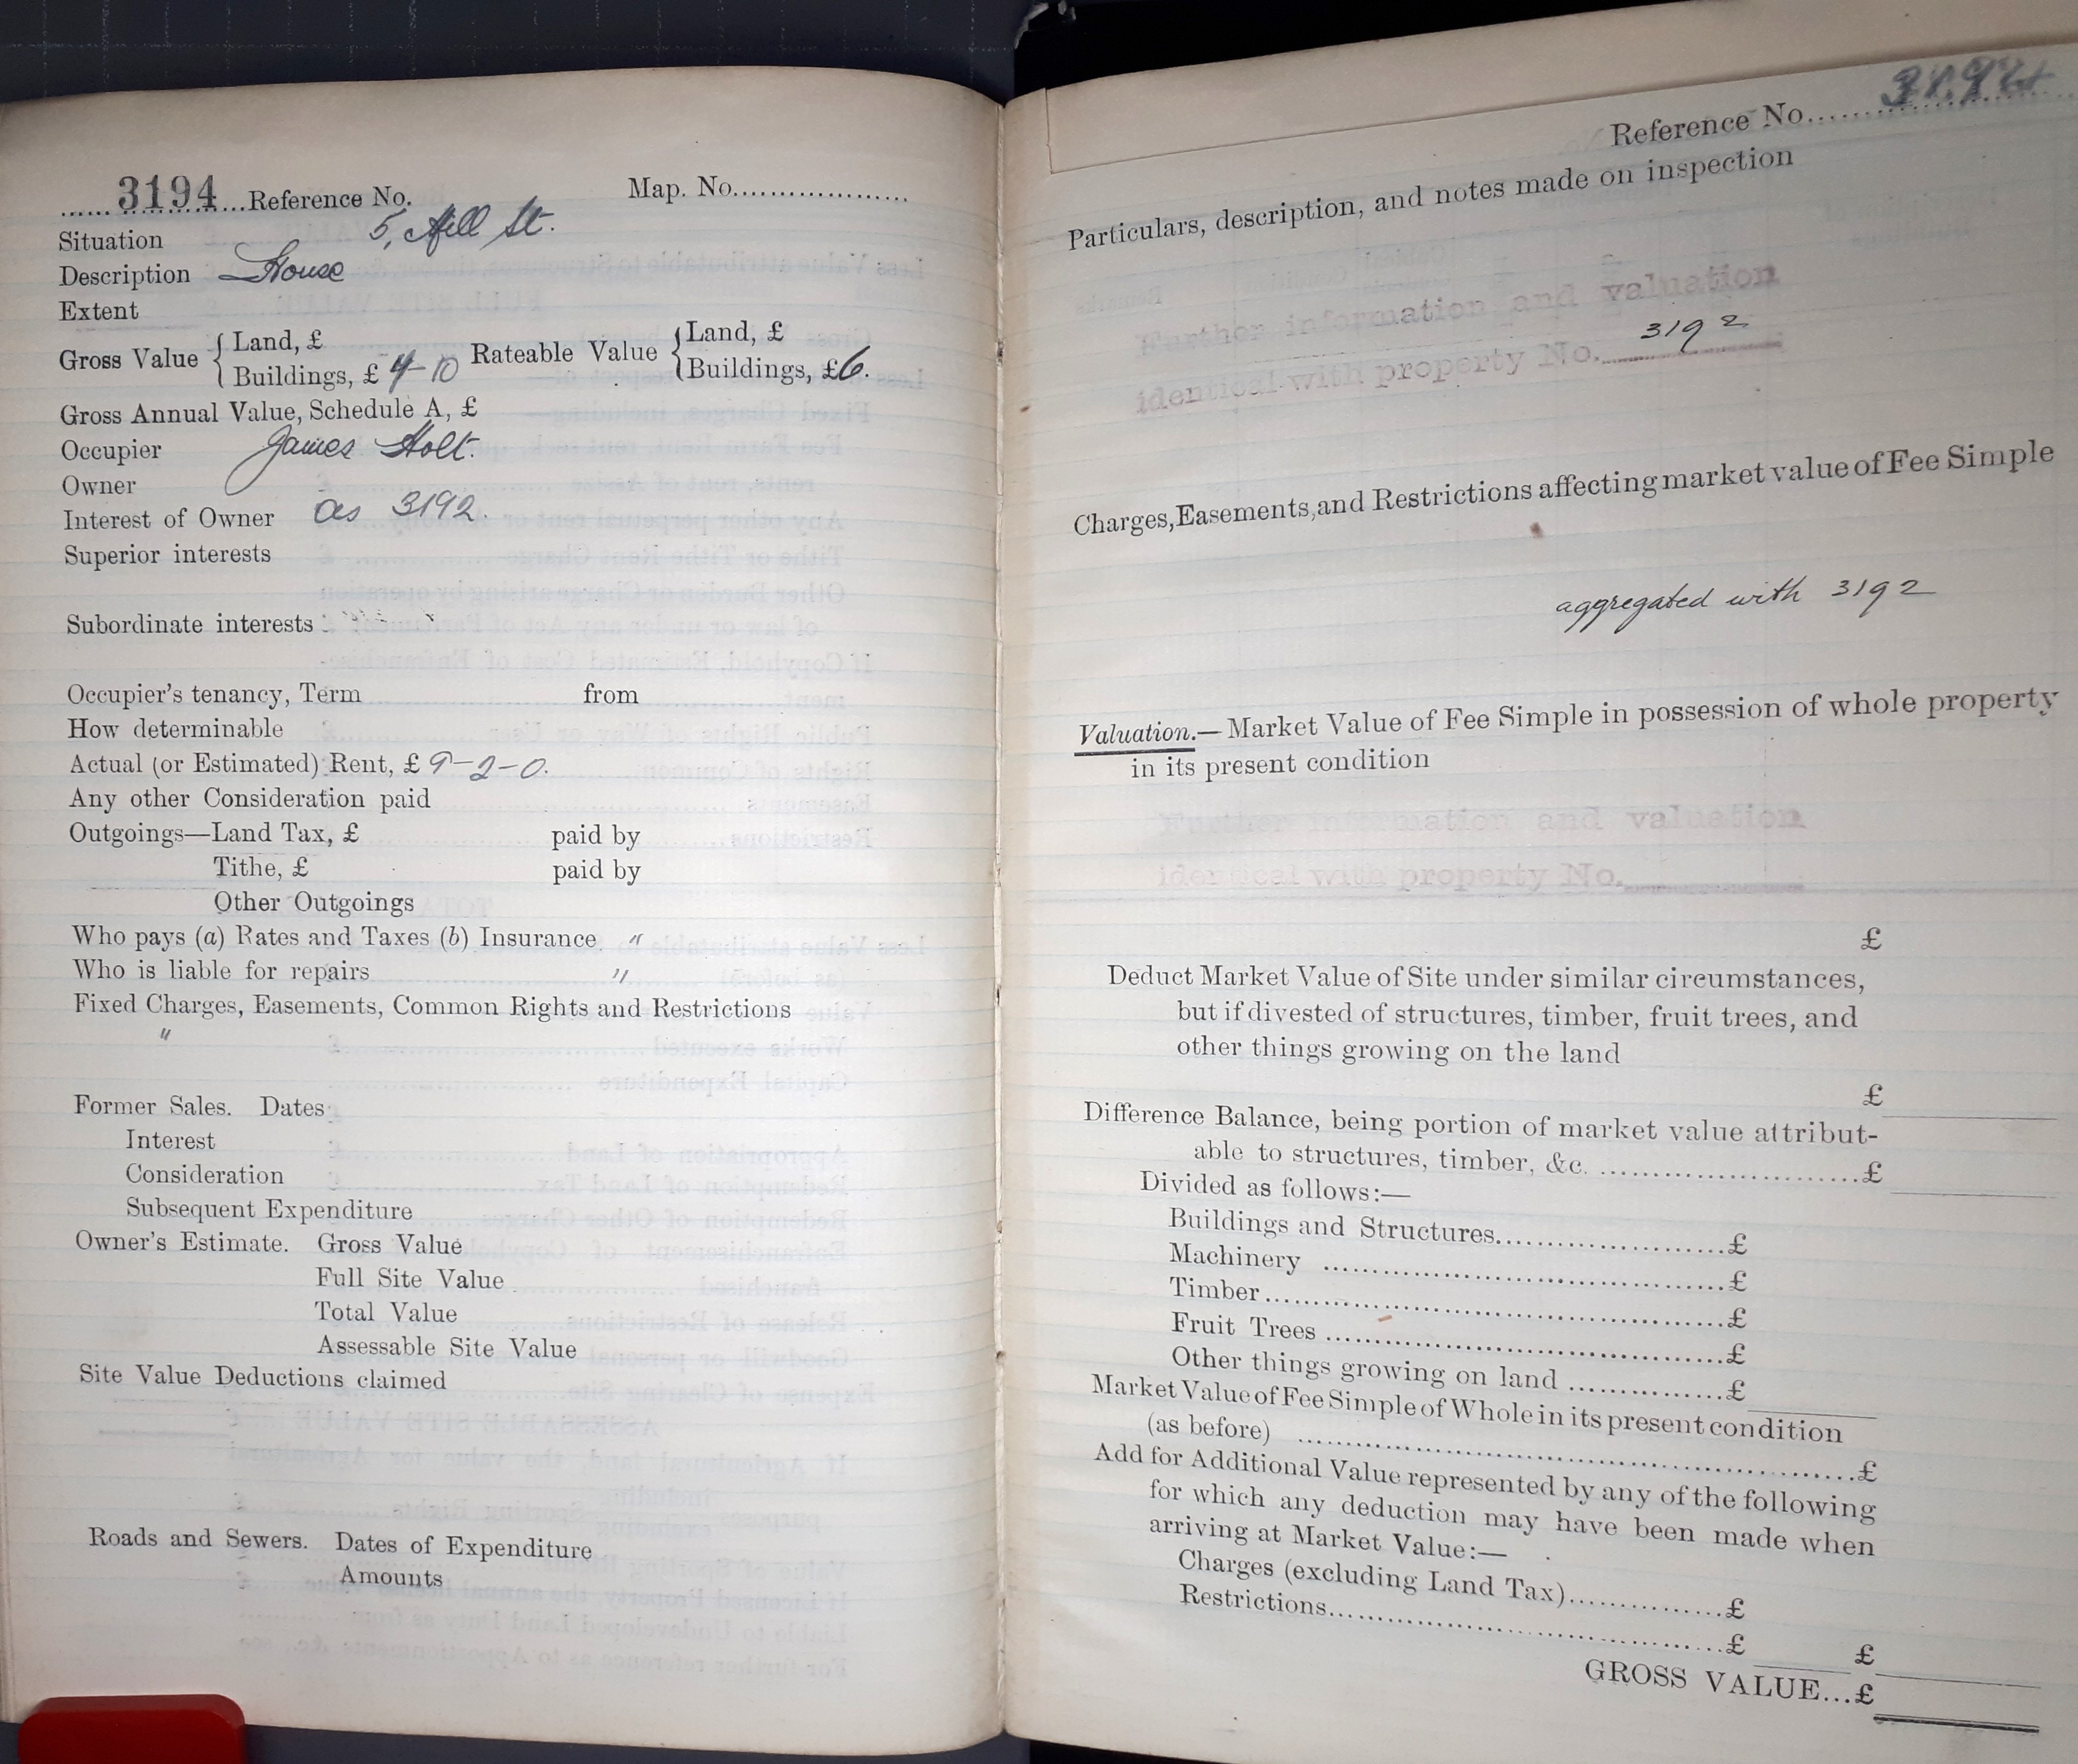 3194 Reference No. Map. No.
Situation 5, Hill St.
Description House
Extent
Gross Value { Land, £ Rateable Value { Land, £
Buildings, £ 4-10 Buildings, £6.
Gross Annual Value, Schedule A, £
Occupier James Holt.
Owner
Interest of Owner as 3192.
Superior interests
Subordinate interests
Occupier's tenancy, Term from
How determinable
Actual (or Estimated) Rent, £ 9-2-0.
Any other Consideration paid
Outgoings—Land Tax, £ paid by
Tithe, £ paid by
Other Outgoings
Who pays (a) Rates and Taxes (b) Insurance "
Who is liable for repairs "
Fixed Charges, Easements, Common Rights and Restrictions
"
Former Sales. Dates
Interest
Consideration
Subsequent Expenditure
Owner's Estimate. Gross Value
Full Site Value
Total Value
Assessable Site Value
Site Value Deductions claimed
Roads and Sewers. Dates of Expenditure
Amounts
Reference No.
Particulars, description, and notes made on inspection
Further information and valuation
identical with property No. 3192
Charges, Easements, and Restrictions affecting market value of Fee Simple
aggregated with 3192
Valuation.—Market Value of Fee Simple in possession of whole property
in its present condition
Further information and valuation
identical with property No.
£
Deduct Market Value of Site under similar circumstances,
but if divested of structures, timber, fruit trees, and
other things growing on the land
£
Difference Balance, being portion of market value attribut-
able to structures, timber, &c. £
Divided as follows:—
Buildings and Structures £
Machinery £
Timber £
Fruit Trees £
Other things growing on land £
Market Value of Fee Simple of Whole in its present condition
(as before) £
Add for Additional Value represented by any of the following
for which any deduction may have been made when
arriving at Market Value:—
Charges (excluding Land Tax) £
Restrictions £ £
GROSS VALUE...£